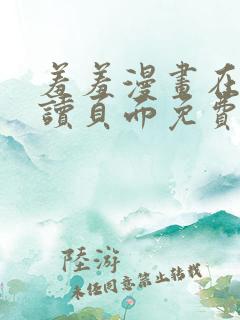 羞羞漫畫在
讀頁面免費
陸游
未經同意禁止轉載